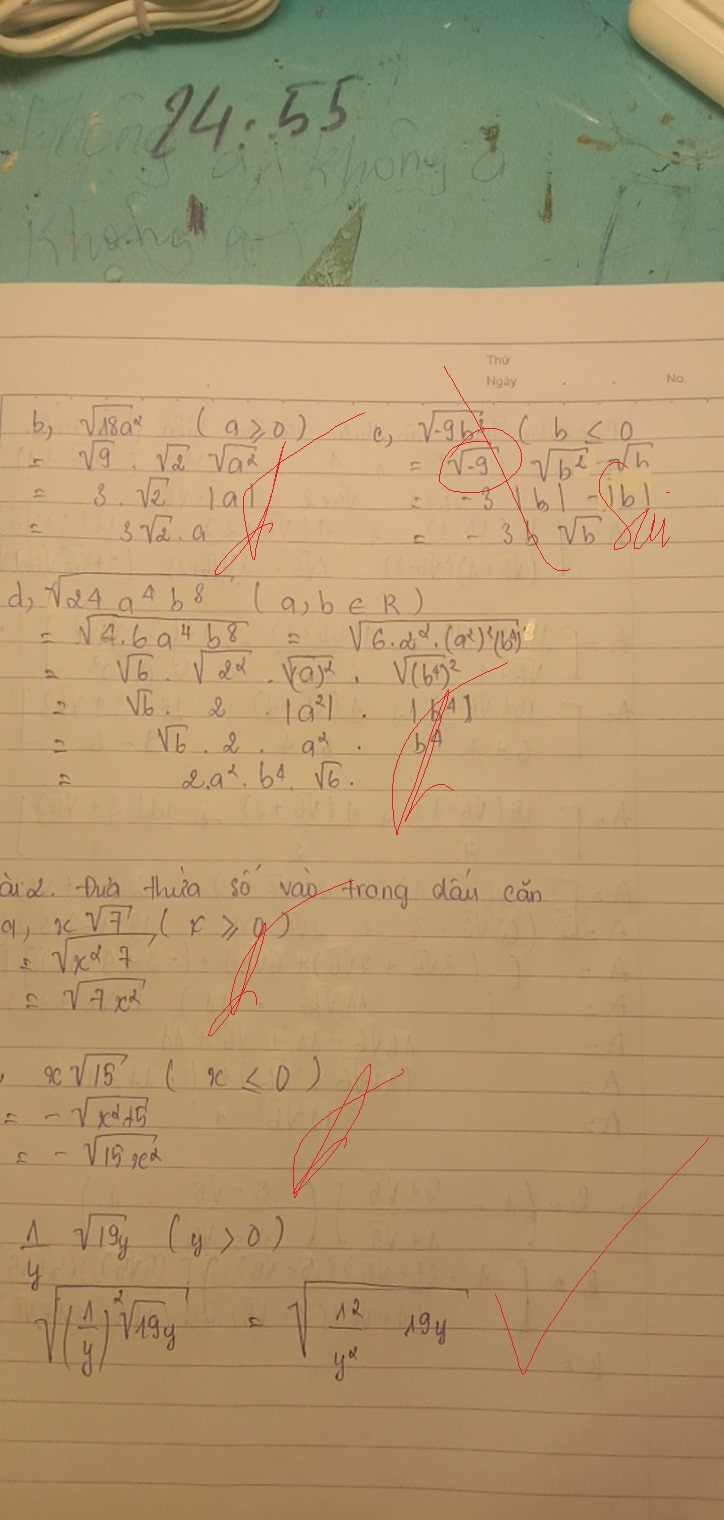 24:55
không a
không a
Thứ
Ngày . . No
b, √18a² ( a ≥ 0 )
= √9 . √2 √a²
= 3 . √2 |a|
= 3√2 . a
c, √-9b³ ( b ≤ 0
= √-9 √b² √b
= -3 |b| - |b|
= - 3b √b
Sai
d, √24 a⁴ b⁸ ( a, b ∈ R )
= √4.6 a⁴ b⁸ = √6.2².(a²)²(b⁴)²
= √6 . √2² . √(a)² . √(b⁴)²
= √6 . 2 . |a²| . |b⁴|
= √6 . 2 . a² . b⁴
= 2.a². b⁴. √6.
ài 2. Đưa thừa số vào trong dấu căn
a, x √7 ( x ≥ 0 )
= √x² 7
= √7x²
x √15 ( x ≤ 0 )
= - √x²15
= - √15x²
1/y √19y ( y > 0 )
√(1/y)² √19y = √1²/y² 19y